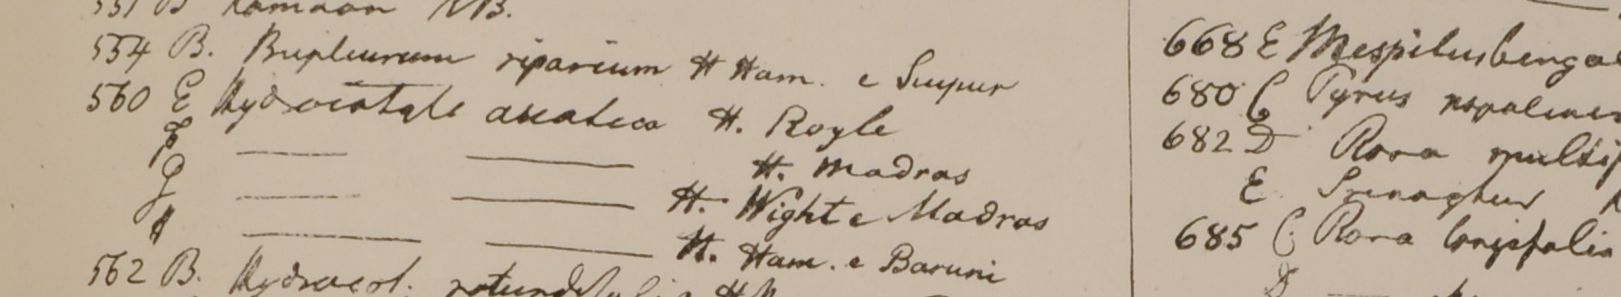 551 B Kamaon RB.
554 B. Bupleurum riparium H Ham. e Suypur
560 E Hydrocotyle asiatica H. Royle
F —— —— H. Madras
G —— —— H. Wight e Madras
H —— —— H. Ham. e Baruni
562 B. Hydrocot. rotundifolia H
668 E Mespilus benga
680 C Pyrus
682 D Rosa multif
E Srinaghur
685 C. Rosa longifolia
D